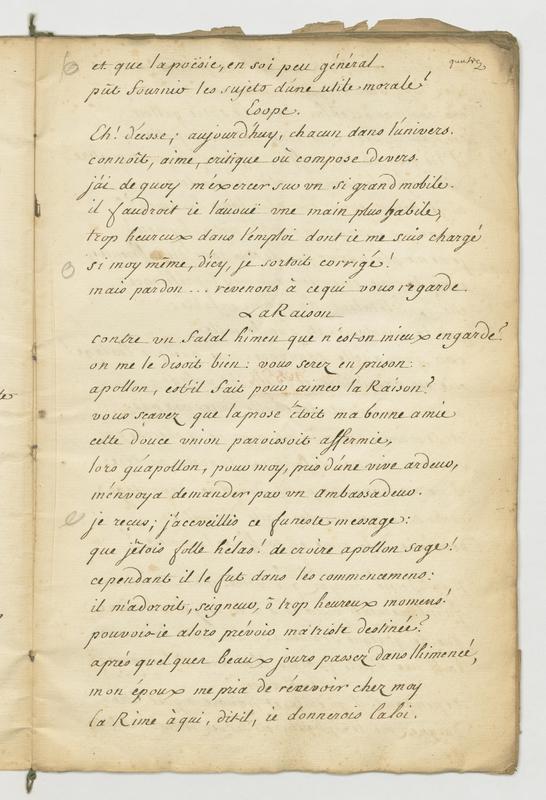 quatre
et que la poësie, en soi peu général
pût fournir les sujets d'une utile morale!
Esope.
Eh! déesse; aujourd'huy, chacun dans l'univers.
connoît, aime, critique où compose de vers.
j'ai de quoy m'éxercer sur vn si grand mobile.
il faudroit ie l'avouë vne main plus habile,
trop heureux dans l'emploi dont ie me suis chargé
si moy même, d'icy, je sortoit corrigé!
mais pardon... revenons à ce qui vous regarde
La Raison
contre vn fatal himen que n'est on mieux en garde?
on me le disoit bien: vous serez en prison:
apollon, est'il fait pour aimer la Raison?
vous sçavez que la prose étoit ma bonne amie
cette douce vnion paroissoit affermie,
lors qu'apollon, pour moy, pris d'une vive ardeur,
m'envoya demander par vn ambassadeur.
je reçus; j'accveillis ce funeste message:
que j'étois folle hélas! de croire apollon sage!
cependant il le fut dans les commencemens:
il m'adoroit, seigneur, ô trop heureux momens!
pouvois-ie alors prévoir ma triste destinée?
aprés quelques beaux jours passez dans l'himenée,
mon époux me pria de recevoir chez moy
la Rime à qui, dit il, ie donnerois la loi.